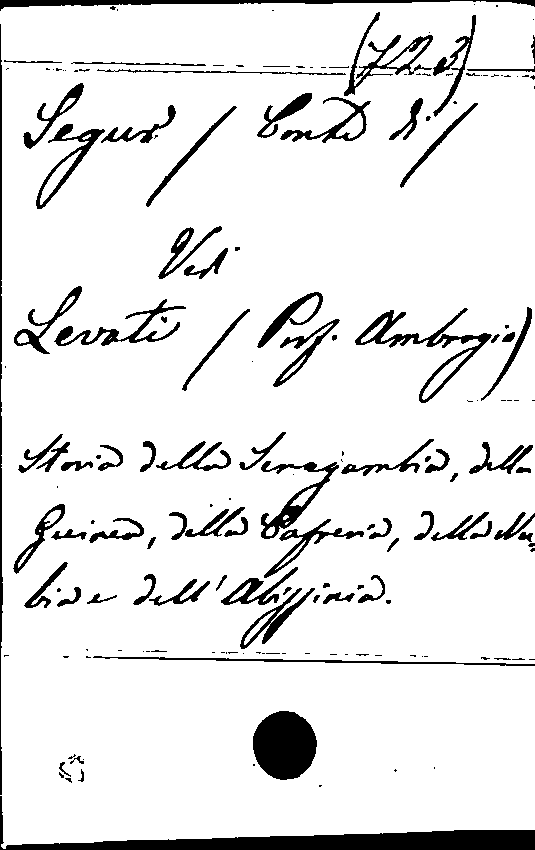 (723)
Segur / Conte di /
Vedi
Levati / Prof. Ambrogio)
Storia della Senegambia, della
Guinea, della Cafreria, della Nu=
bia e dell'Abissinia.